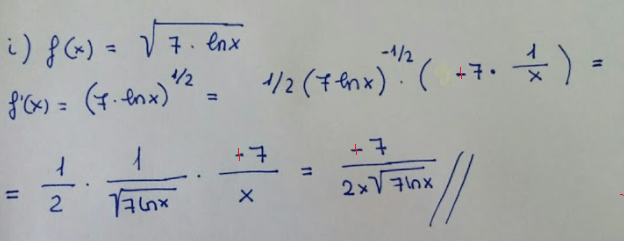 i) f(x) = √(7 · lnx)
f'(x) = (7·lnx)^1/2 = 1/2 (7lnx)^-1/2 · (+7 · 1/x) =
= 1/2 · 1/√(7lnx) · +7/x = +7/(2x√(7lnx)) //